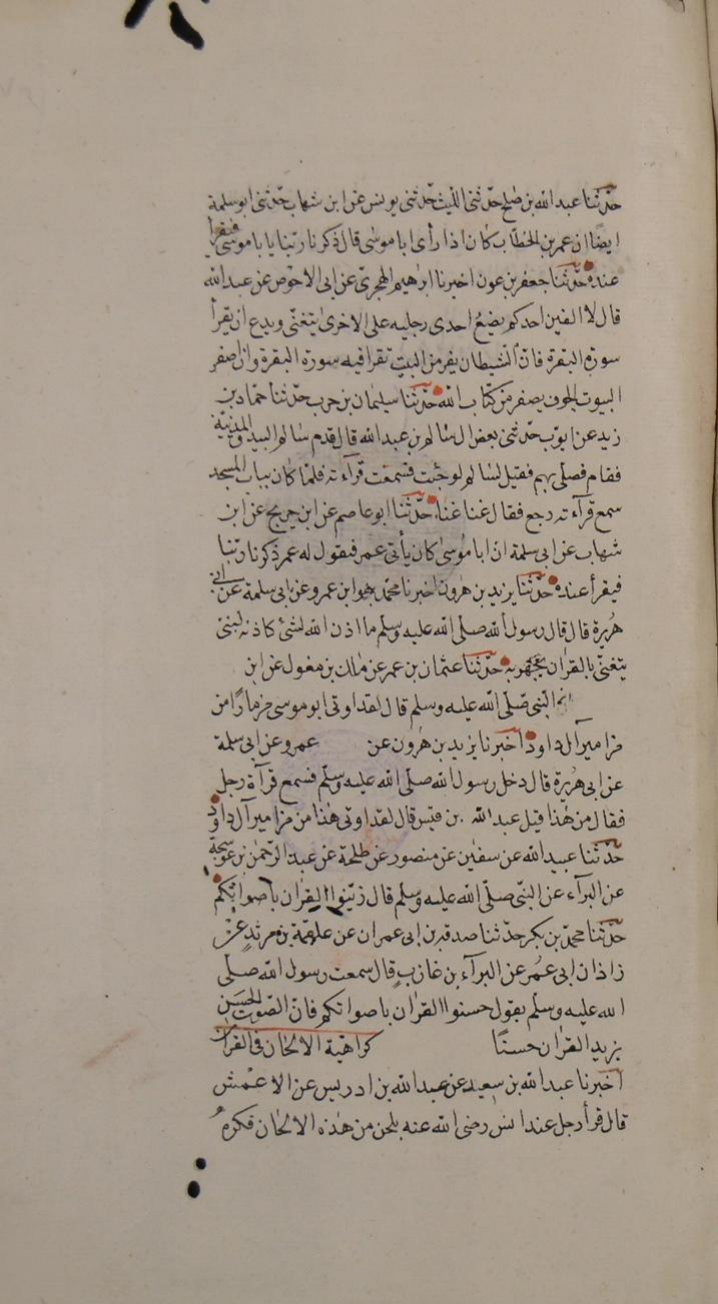 حدثنا عبد الله بن صلح حدثنى الليث حدثنى يونس عن ابن شهاب حدثنى ابو سلمة
ايضا ان عمر بن الخطاب كان اذا رأى ابا موسى قال ذكرنا ربنا يا با موسى فيقرأ
عنده حدثنا جعفر بن عون اخبرنا ابرهيم الهجرى عن ابى الاحوص عن عبد الله
قال لا الفين احدكم يضع احدى رجليه على الاخرى يتغنى ويدع ان يقرأ
سورة البقرة فان الشيطان يفر من البيت تقرأ فيه سورة البقرة وان اصفر
البيوت الجوف يصفر من كتاب الله حدثنا سليمان بن حرب حدثنا حماد بن
زيد عن ايوب حدثنى بعض ال سالم بن عبد الله قال قدم سالم البيد والمدينة
فقام فصلى بهم فقيل لسالم لو جئت فسمعت قرآءته فلما كان بباب المسجد
سمع قرآءته رجع فقال غنا غنا حدثنا ابو عاصم عن ابن جريج عن ابن
شهاب عن ابى سلمة ان ابا موسى كان يأتى عمر فيقول له عمر ذكرنا ربنا
فيقرأ عنده حدثنا يزيد بن هرون اخبرنا محمد هو ابن عمرو عن ابى سلمة عن ابى
هريرة قال قال رسول الله صلى الله عليه وسلم ما اذن الله لشئ كاذنه لنبى
يتغنى بالقران يجهر به حدثنا عثمان بن عمر عن ملك بن مغول عن ابن
النبى صلى الله عليه وسلم قال لقد اوتى ابو موسى مزمارا من
مزامير آل داود اخبرنا يزيد بن هرون عن عمرو عن ابى سلمة
عن ابى هريرة قال دخل رسول الله صلى الله عليه وسلم فسمع قرآة رجل
فقال من هذا قيل عبد الله بن قيس قال لقد اوتى هذا من مزامير آل داود
حدثنا عبيد الله عن سفين عن منصور عن طلحة عن عبد الرحمن بن عوسجة
عن البرآء عن النبى صلى الله عليه وسلم قال زينوا القران باصواتكم
حدثنا محمد بن بكر حدثنا صدقة بن ابى عمران عن علقمة بن مرثد عن
زاذان ابى عمر عن البرآء بن عازب قال سمعت رسول الله صلى
الله عليه وسلم يقول حسنوا القران باصواتكم فان الصوت الحسن
يزيد القران حسنا كراهية الالحان فى القران
اخبرنا عبد الله بن سعيد عن عبد الله بن ادريس عن الاعمش
قال قرأ رجل عند انس رضى الله عنه بلحن من هذه الالحان فكره